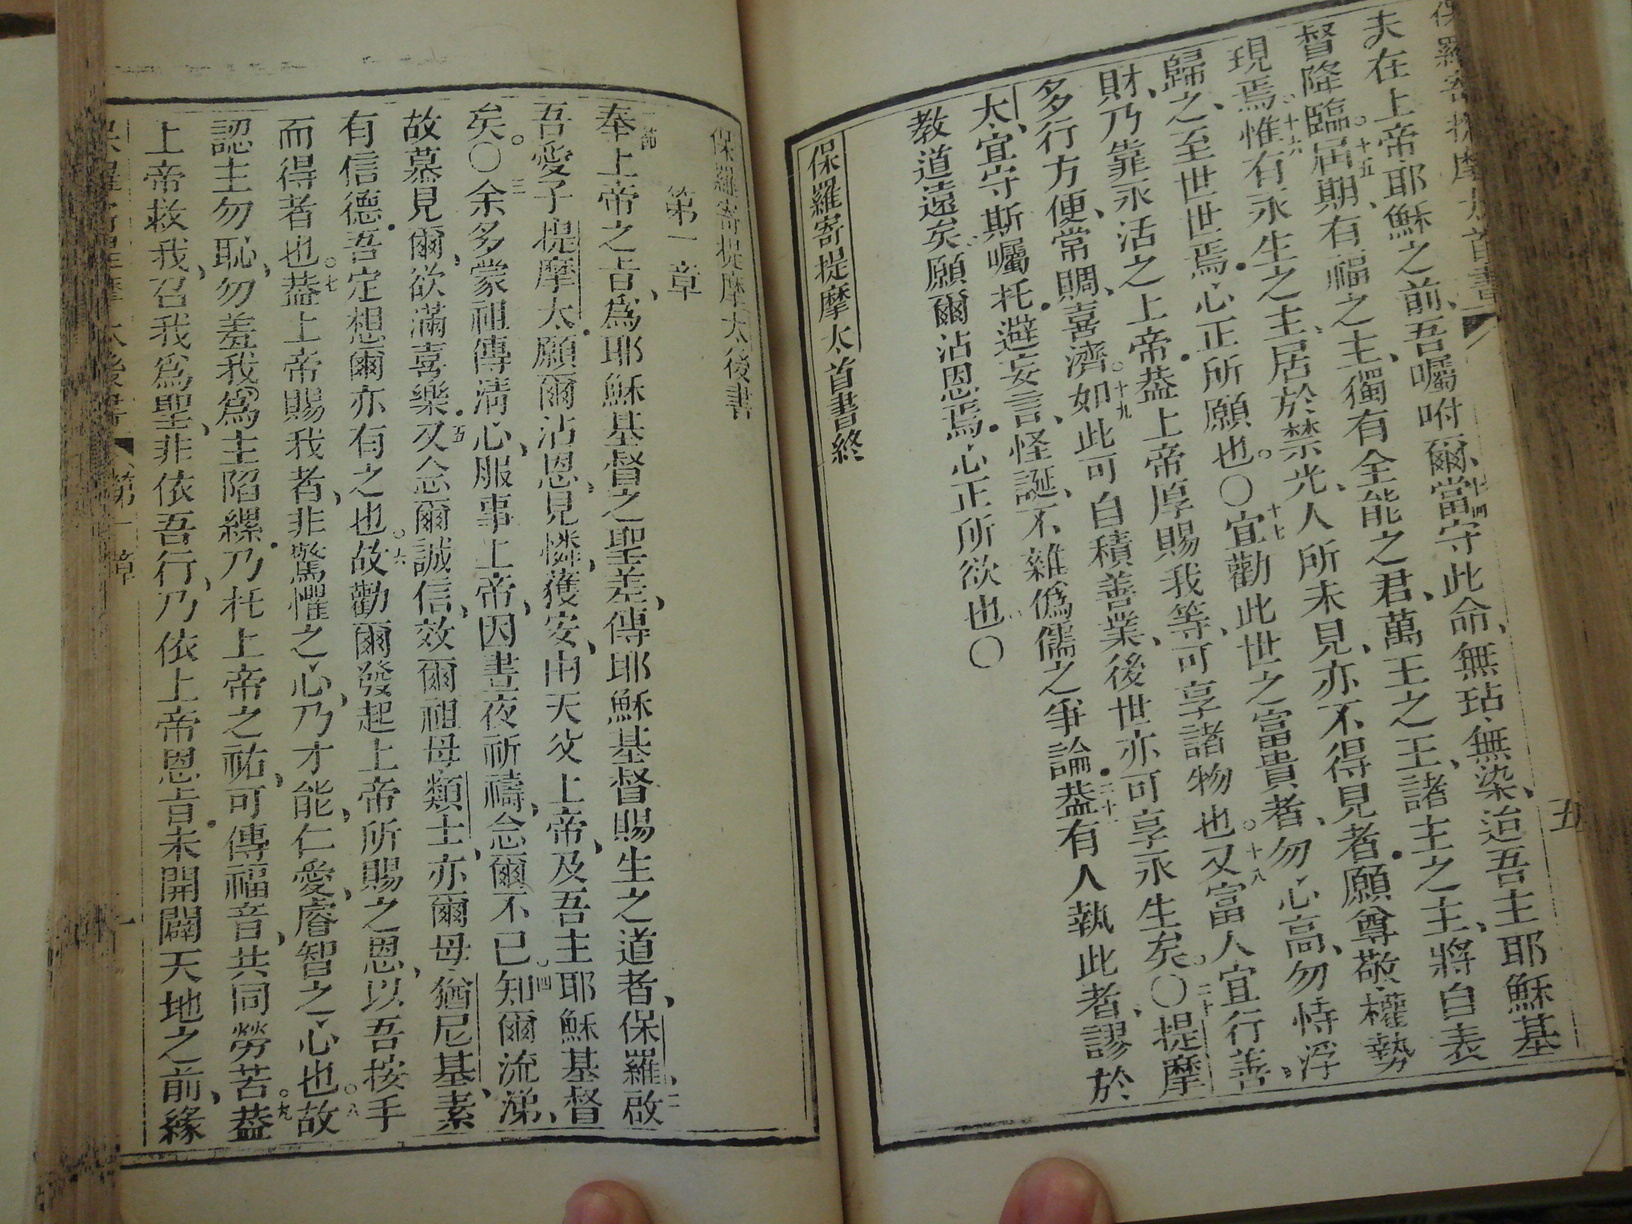 夫在上帝耶穌之前、吾囑咐爾、十四當守此命、無玷、無染、迨吾主耶穌基
督降臨。十五屆期、有福之主、獨有全能之君、萬王之王、諸主之主、將自表
現焉。十六惟有永生之主、居於禁光、人所未見、亦不得見者、願尊敬權勢
歸之、至世世焉、心正所願也。〇十七宜勸此世之富貴者、勿心高、勿恃浮
財、乃靠永活之上帝、蓋上帝厚賜我等、可享諸物也。十八又富人宜行善、
多行方便、常賙、喜濟、十九如此可自積善業、後世亦可享永生矣。〇二十提摩
太、宜守斯囑托、避妄言、怪誕、不雜僞儒之爭論、二十一蓋有人執此者、謬於
教道遠矣、願爾沾恩焉、心正所欲也〇
保羅寄提摩太首書終
五
保羅寄提摩太後書
第一章
奉上帝之旨、爲耶穌基督之聖差、傳耶穌基督賜生之道者、保羅、二啟
吾愛子提摩太、願爾沾恩、見憐、獲安、由天父上帝、及吾主耶穌基督
矣。〇三余多蒙祖傳淸心、服事上帝、因晝夜祈禱、念爾不已。四知爾流涕、
故慕見爾、欲滿喜樂、五又念爾誠信、效爾祖母類士、亦爾母猶尼基、素
有信德、吾定想爾亦有之也。六故勸爾發起上帝所賜之恩、以吾按手
而得者也。七蓋上帝賜我者、非驚懼之心、乃才能、仁愛、睿智之心也。八故
認主勿恥、勿羞我爲主陷縲、乃托上帝之祐、可傳福音、共同勞苦。九蓋
上帝救我、召我爲聖、非依吾行、乃依上帝恩旨、未開闢天地之前、緣